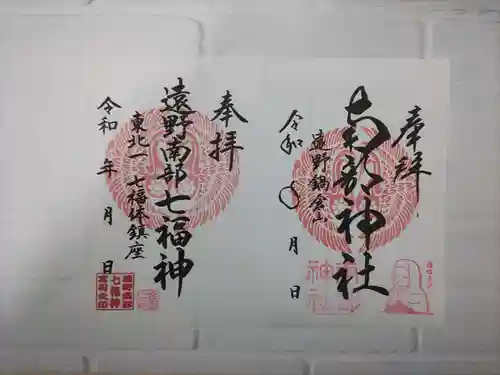 奉拝
南部神社
遠野鍋倉山
令和 年 月 日
神社
奉拝
遠野南部七福神
東北一 七福体鎮座
令和 年 月 日
七福神